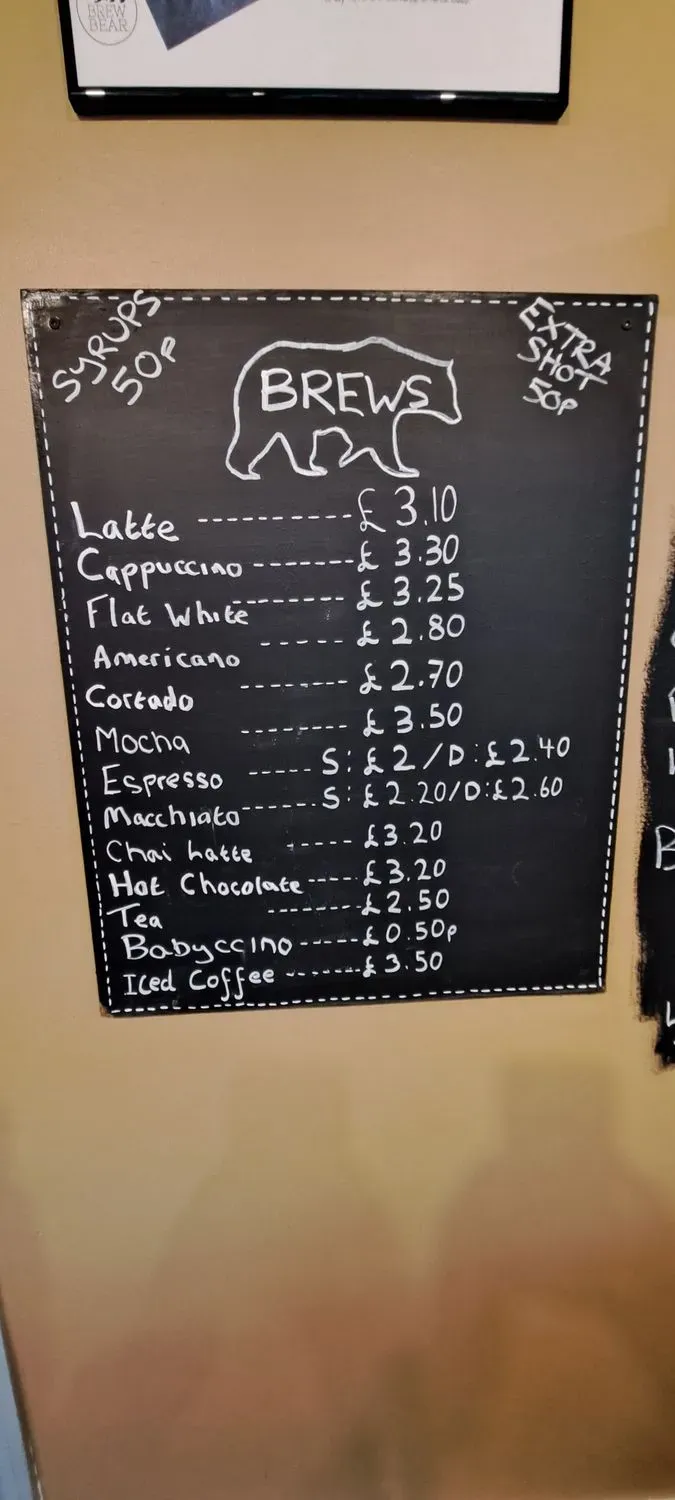 BREW
BEAR
SYRUPS
50P
EXTRA
SHOT
50p
BREWS
Latte ---------- £3.10
Cappuccino ------- £3.30
Flat White -------- £3.25
Americano ----- £2.80
Cortado ------- £2.70
Mocha ------- £3.50
Espresso ----- S: £2/D:£2.40
Macchiato ------ S: £2.20/D:£2.60
Chai Latte ----- £3.20
Hot Chocolate ---- £3.20
Tea ------- £2.50
Babyccino ----- £0.50p
Iced Coffee ------- £3.50